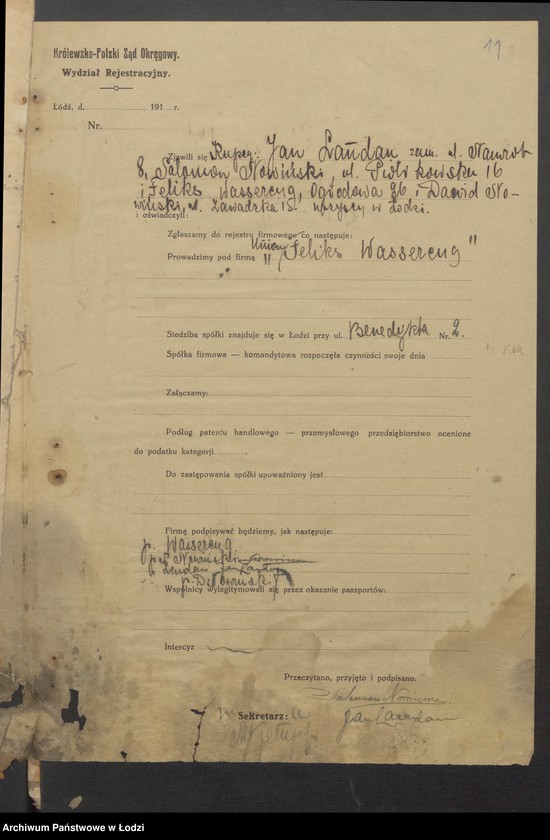 11
Królewsko-Polzki Sąd Okręgowy.
Wydział Rejestracyjny.
Łódź, d. 191 r.
Nr.
Zjawili się Kupcy: Jan Landau zam. ul. Nawrot
8, Salomon Nowiński, ul. Piotrkowska 16
i Feliks Wassercug, Ogrodowa 26 i Dawid No-
wiński, ul. Zawadzka 15 wszyscy w Łodzi.
i oświadczyli:
Zgłaszamy do rejestru firmowego co następuje:
Prowadzimy pod firmą " Union Feliks Wassercug "
Siedziba spółki znajduje się w Łodzi przy ul. Benedykta Nr. 2.
Spółka firmowa — komandytowa rozpoczęła czynności swoje dnia
Załączamy:
Podług patentu handlowego — przemysłowego przedsiębiorstwo ocenione
do podatku kategorji
Do zastępowania spółki upoważniony jest
Firmę podpisywać będziemy, jak następuje:
p. Wassercug
p. S. Nowiński
p. Landau Jan Landau
p. D. Nowiński
Wspólnicy wylegitymowali się przez okazanie paszportów:
Intercyz
Przeczytano, przyjęto i podpisano.
Salomon Nowiński
Sekretarz:
Jan Landau
Archiwum Państwowe w Łodzi